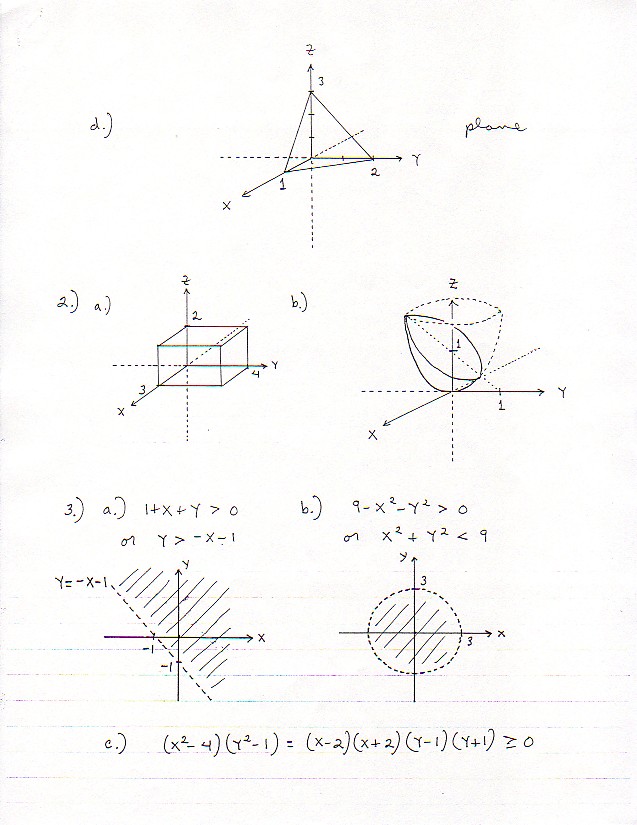 Z
3
d.)
plane
Y
1
2
X
2.) a.)
Z
2
Y
3
4
X
b.)
Z
1
Y
1
X
3.) a.) 1+X+Y > 0
or Y > -X-1
b.) 9-X²-Y² > 0
or X²+Y² < 9
Y=-X-1
Y
X
-1
-1
Y
3
X
3
c.) (X²-4)(Y²-1) = (X-2)(X+2)(Y-1)(Y+1) ≥ 0